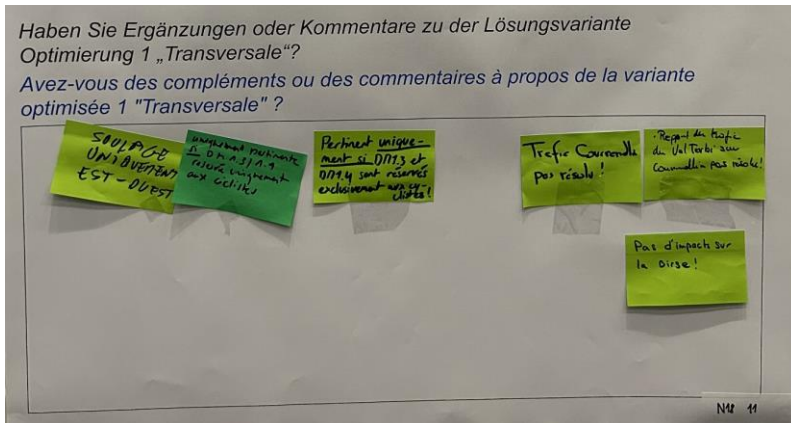 Haben Sie Ergänzungen oder Kommentare zu der Lösungsvariante
Optimierung 1 „Transversale“?
Avez-vous des compléments ou des commentaires à propos de la variante
optimisée 1 "Transversale" ?
SOULAGE
UNIQUEMENT
EST-OUEST
uniquement pertinente
si DM1.3/1.4
réservé uniquement
aux cyclistes
Pertinent unique-
ment si DM1.3 et
DM1.4 sont réservés
exclusivement aux cy-
clistes!
Trafic Courrendlin
pas résolu !
- Report du trafic
du Val Terbi sur
Courrendlin pas résolu!
Pas d'impact sur
la Birse!
N18 11